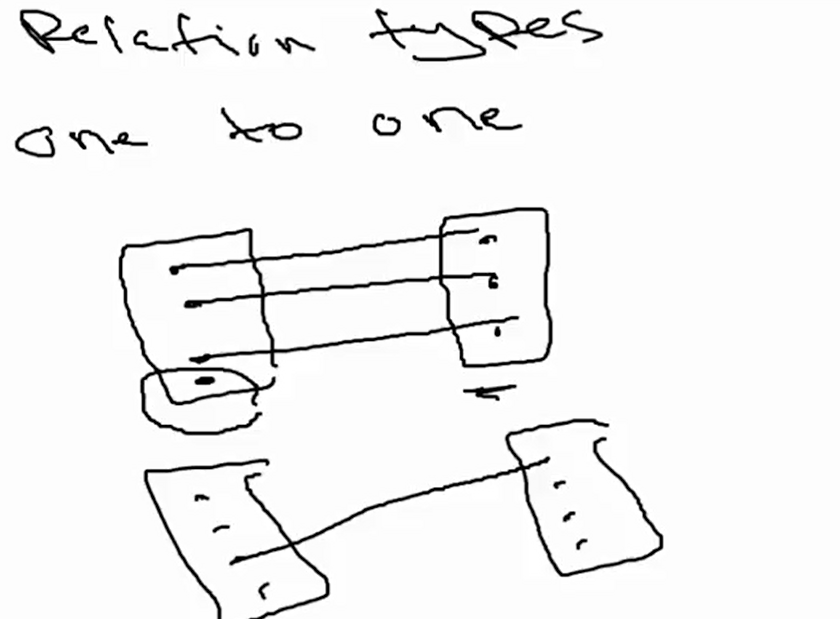 Relation types
one to one